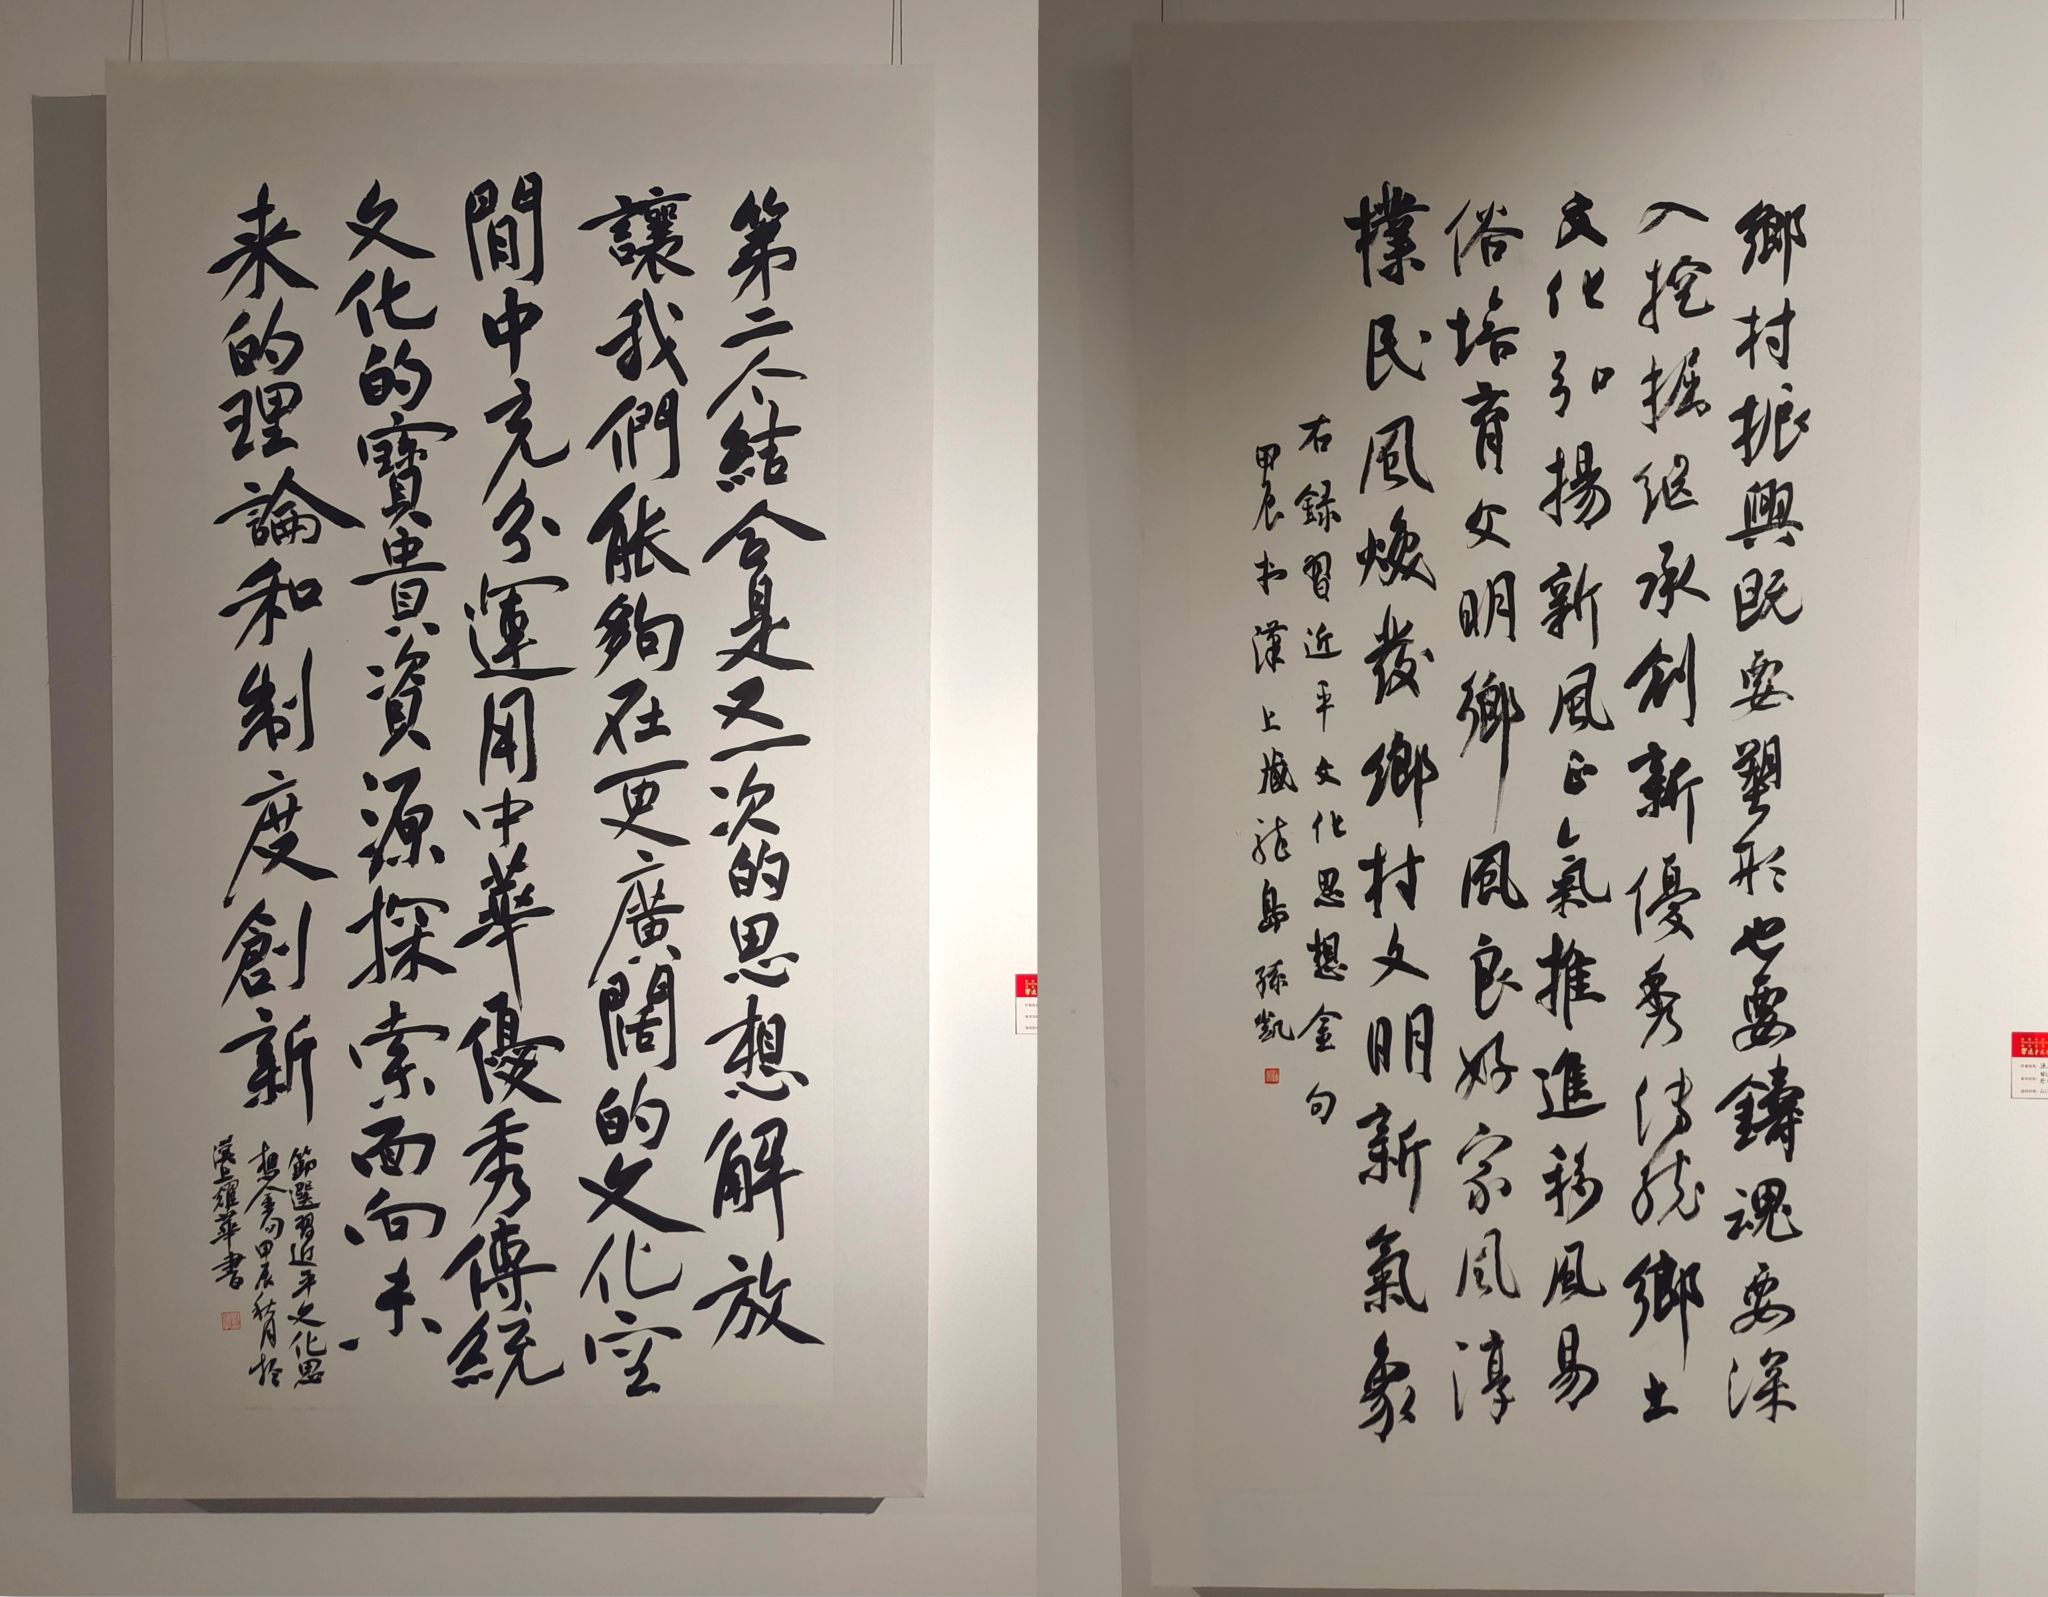 第二个結合是又一次的思想解放
讓我們能夠在更廣闊的文化空
間中充分運用中華優秀傳統
文化的寶貴資源探索面向未
来的理論和制度創新
節選習近平文化思
想金句甲辰秋月於
漢上耀華書
鄉村振興既要塑形也要鑄魂要深
入挖掘继承創新優秀传統鄉土
文化弘揚新風正氣推進移風易
俗培育文明鄉風良好家风淳
樸民風焕發鄉村文明新氣象
右録習近平文化思想金句
甲辰於漢上藏龍島孫凯